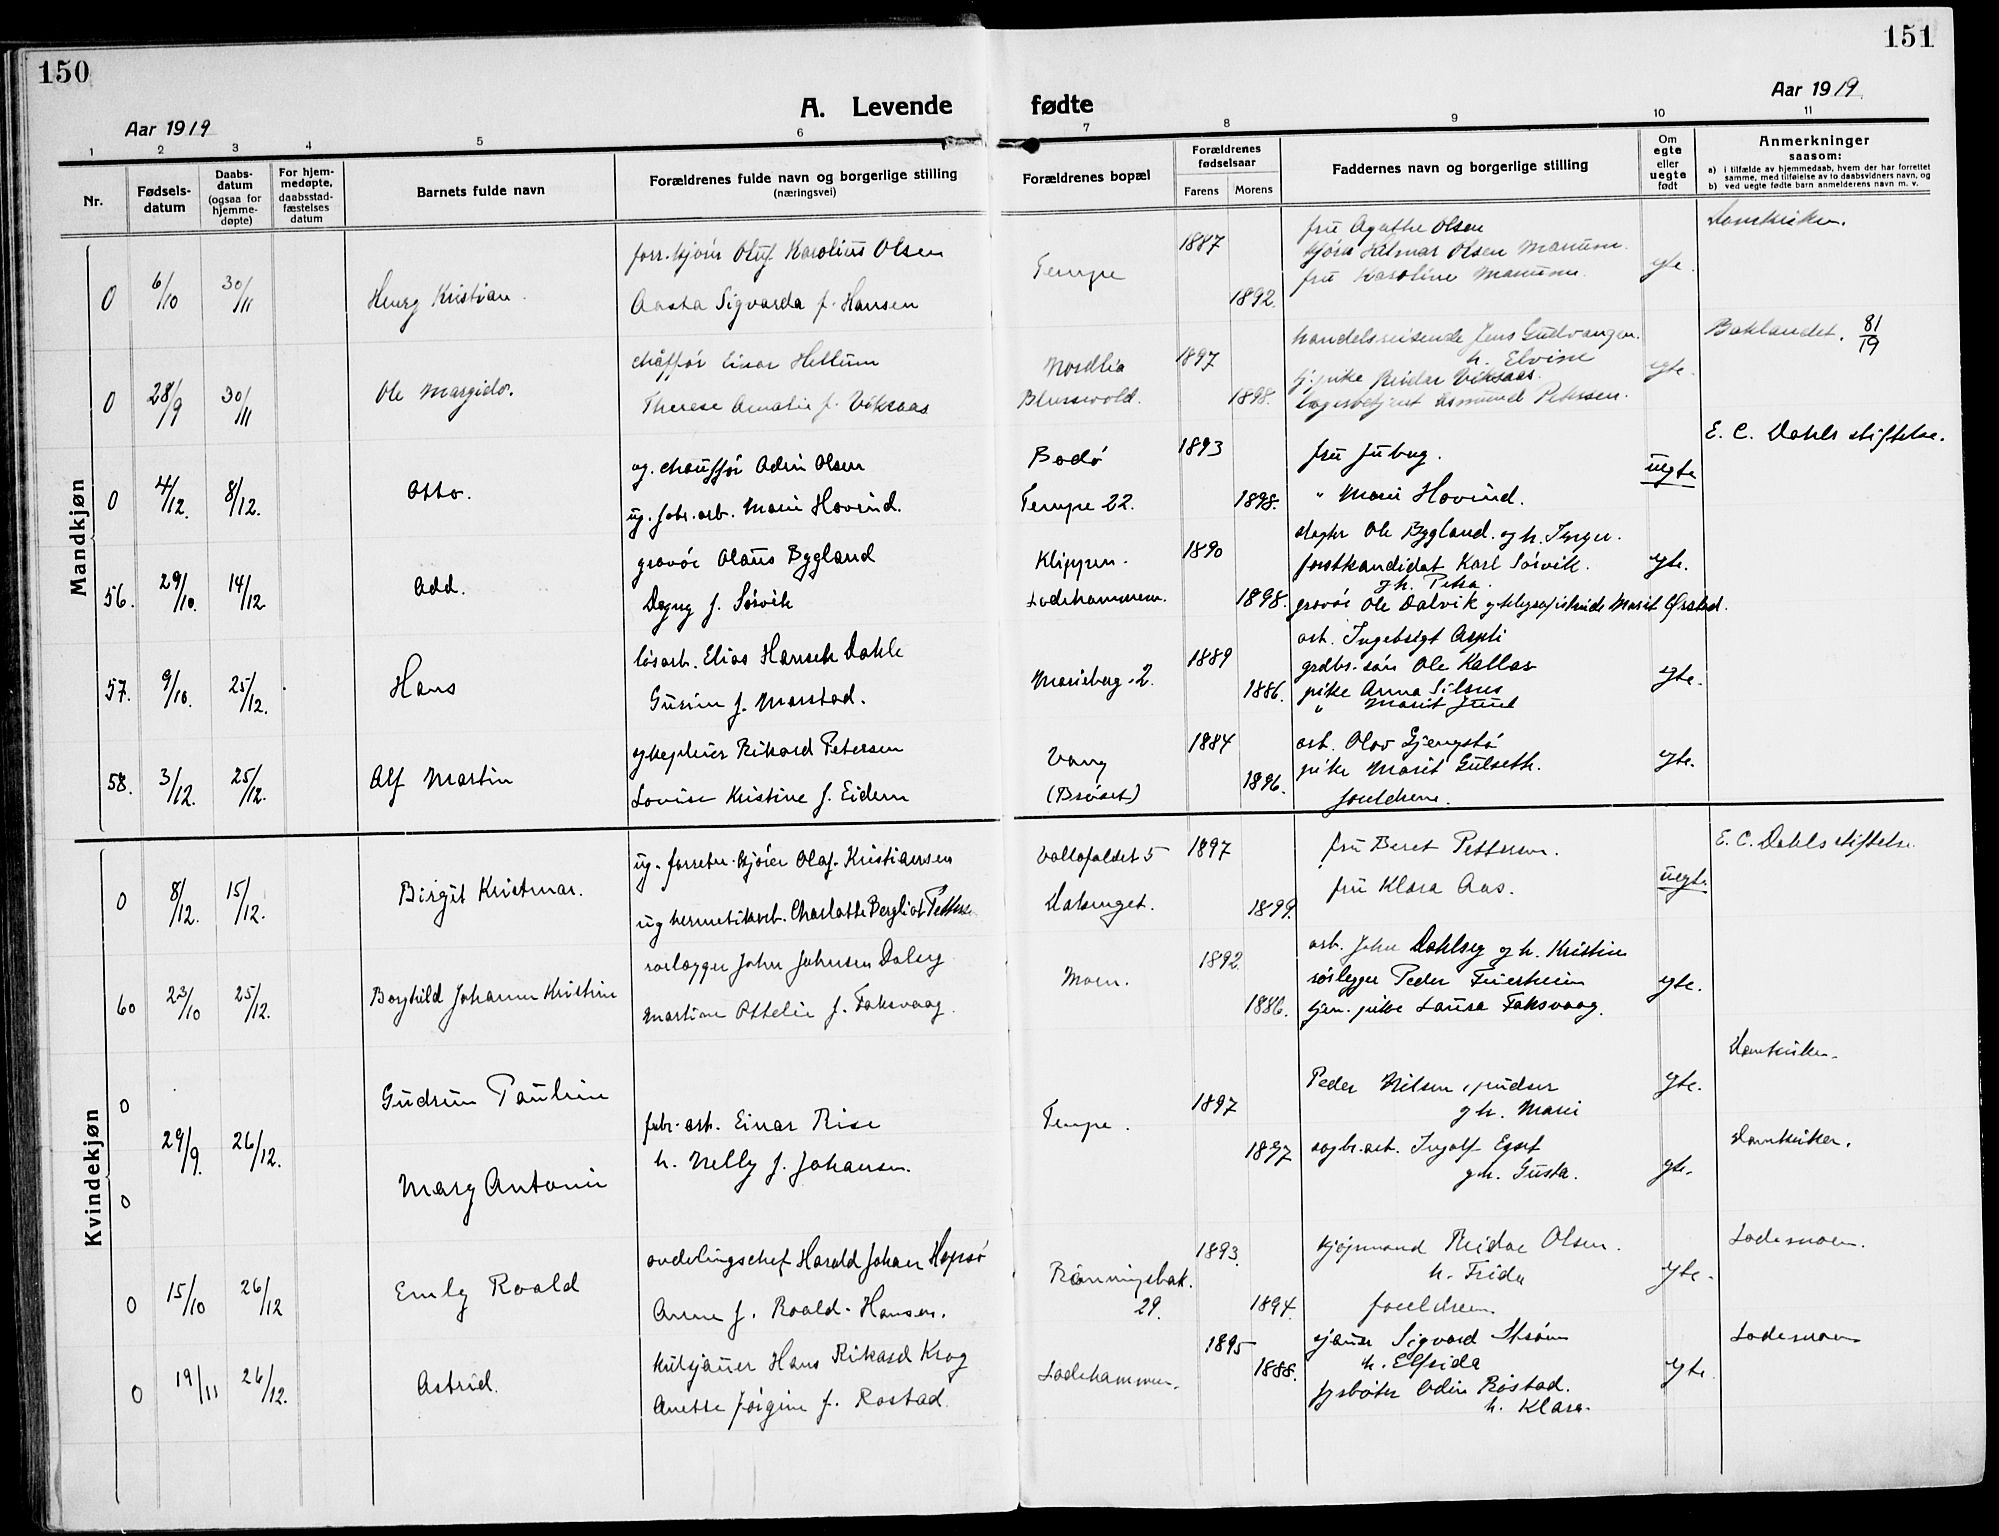 150
151
A. Levende fødte
Aar 1919
Aar 1919
1 2 3 4 5 6 7 8 9 10 11
Nr.
Fødsels-
datum
Daabs-
datum
(ogsaa for
hjemme-
døpte)
For hjem-
medøpte,
daabsstad-
fæstelses
datum
Barnets fulde navn
Forældrenes fulde navn og borgerlige stilling
(næringsvei)
Forældrenes bopæl
Forældrenes
fødselsaar
Farens Morens
Faddernes navn og borgerlige stilling
Om
egte
eller
uegte
født
Anmerkninger
saasom:
a) i tilfælde av hjemmedaab, hvem der har forrettet
samme, med tilføielse av to daabsvidners navn, og
b) ved uegte fødte barn anmelderens navn m. v.
Mandkjøn
0 6/10 30/11 Henry Kristian.
forr. kjører Oluf Karolius Olsen
Aasta Sigvarda f. Hansen
Tempe
1887
1892.
fru Agathe Olsen
Hilmar Olsen Manum.
fru Karoline Manum.
egte.
Domkirken.
0 28/9 30/11 Ole Margido.
Einar Hellum
Therese Amalie f. Viksaas
Nordlia
1897
1898.
handelsreisende Jens Gudvangen.
h. Elvine
Reidar Viksaas.
Petersen.
egte.
Baklandet. 81/19
0 4/12. 8/12. Otto.
ug. chauffør Odin Olsen
ug. fabr. arb. Marie Hovind.
Bodø
Tempe 22.
1893
1898.
fru Juberg.
" Marie Hovind.
uegte
E. C. Dahls stiftelse.
56. 29/10. 14/12 Odd.
gravør Olaus Bygland
Dagny f. Sørvik
Klippen.
Ladehammeren.
1890
1898.
Ole Bygland. og h. Inger.
forstkandidat Karl Sørvik.
og h. Petra.
gravør Ole Dalvik og Marit Ørstad.
egte.
57. 9/10. 25/12. Hans
løsarb. Elias Hansen Dahle
Gurine f. Marstad.
Marieborg 2.
1889
1886.
arb. Ingebrigt
grdbr. søn Ole Kallar
pike Anna
" Marit
egte.
58. 3/12. 25/12. Alf Martin
sykepleier Rikard Petersen
Lovise Kristine f. Eidem
Vang
(Brøset)
1884
1896.
arb. Olav Gjengstø
pike Marit Gulseth.
forældrene.
egte.
Kvindekjøn
0 8/12. 15/12. Birgit Kristmar.
ug. forretn. kjører Olaf Kristiansen
ug hermetikarb. Charlotte Bergliot Petterse
5
1897
1899.
fru Beret Pettersen.
fru Klara Aas.
uegte.
E. C. Dahls stiftelse.
60 23/10 25/12. Borghild Johanne Kristine
rørlægger John Johnsen
Martine Ottelie f. Faksvaag.
Moen.
1892.
1886.
arb. John og h. Kristine
rørlegger Peder
tjen. pike Laura Faksvaag.
egte.
0 Gudrun Pauline
29/9. 26/12.
0 Mary Antonie
fabr. arb. Einar Rise
h. Nelly f. Johansen.
Tempe.
1897
1897
Peder Nilsen, pudser
og h. Marie
egte.
Domkirken.
sagbr. arb. Ingolf
og h. Gusta.
egte.
Domkirken.
0 15/10 26/12 Emly Roald
avdelingschef Harald Johan Hopsø
Anne f. Roald-Hansen.
Rønningsbak.
29.
1893.
1894.
kjøpmand Reidar Olsen.
h. Frida
forældrene.
egte.
Lademoen.
0 19/11 26/12. Astrid.
kulsjauer Hans Rikard Krog
Anette Jørgine f. Rostad.
Ladehammeren.
1895
1888.
sjauer Sigvard Strøm
h. Elfrida
fyrbøter Odin Røstad.
h. Klara.
egte.
Lademoen